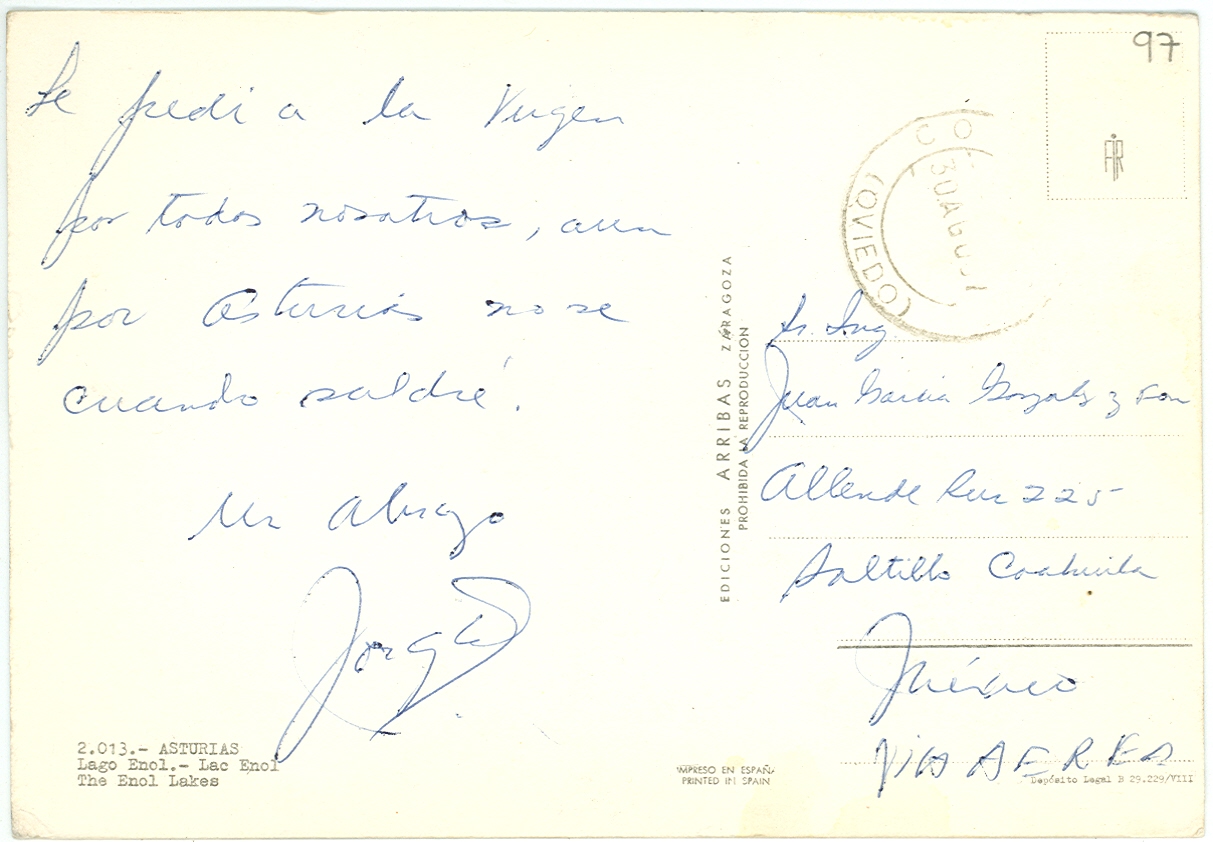 Le pedi a la Virgen
por todos nosotros, aun
por Asturias no se
cuando saldré.
Un abrazo
Jorge
2.013.- ASTURIAS
Lago Enol.- Lac Enol
The Enol Lakes
EDICIONES ARRIBAS ZARAGOZA
PROHIBIDA LA REPRODUCCION
IMPRESO EN ESPAÑA
PRINTED IN SPAIN
97
30 AGO
(OVIEDO)
Sr. Ing
Juan Garcia Gonzalez y Fam
Allende Sur 225
Saltillo Coahuila
México
VIA AEREA
Depósito Legal B 29.229/VIII